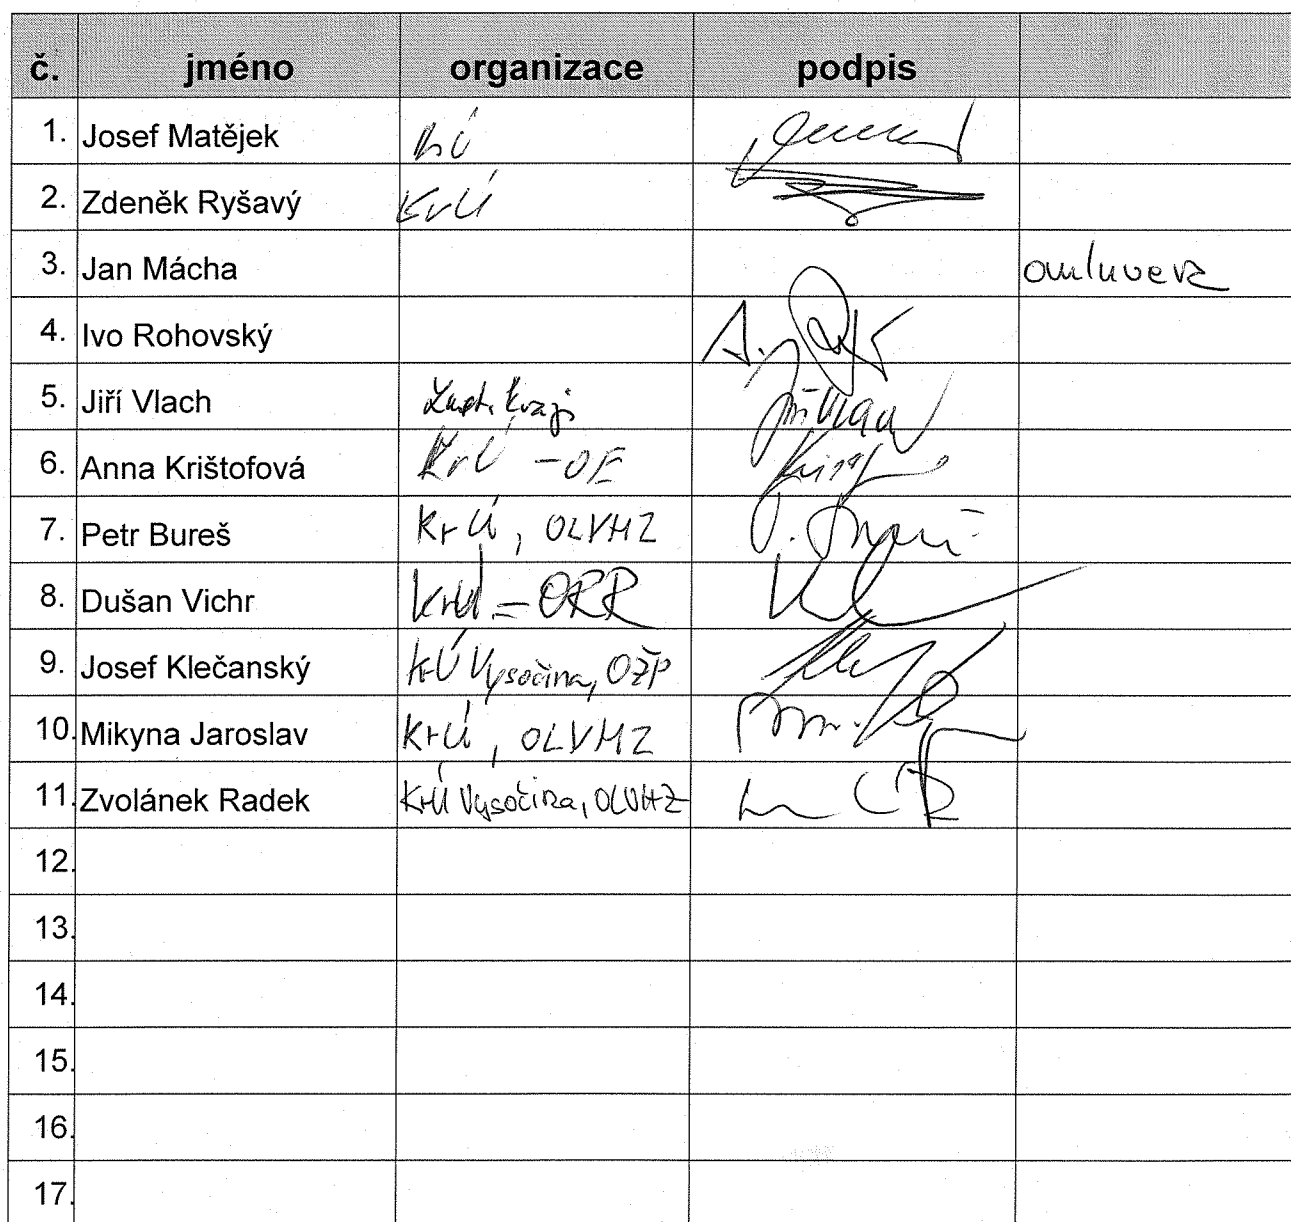 č. jméno organizace podpis
1. Josef Matějek KÚ
2. Zdeněk Ryšavý KrÚ
3. Jan Mácha omluven
4. Ivo Rohovský
5. Jiří Vlach Zast. kraje Jiří Vlach
6. Anna Krištofová KrÚ - OE
7. Petr Bureš KrÚ, OLVHZ P. Bureš
8. Dušan Vichr KrÚ - ORR
9. Josef Klečanský KrÚ Vysočina, OŽP
10. Mikyna Jaroslav KrÚ, OLVHZ
11. Zvolánek Radek KrÚ Vysočina, OLVHZ
12.
13.
14.
15.
16.
17.